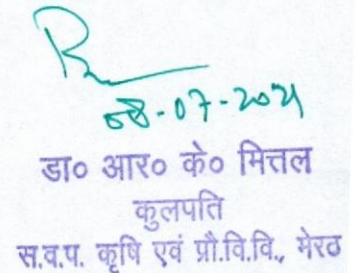 08-07-2021
डा० आर० के० मित्तल
कुलपति
स.व.प. कृषि एवं प्रौ.वि.वि., मेरठ